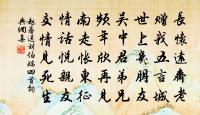 長懷遠齋老
贈我言城
世上莫朋友
吳中君弟兄
頻年欣再見
南走悵東征
情話悅親友
交情見死生
趙蕃送劉伯瑞四首詞
典網集